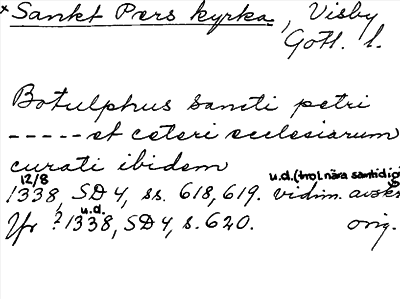 x Sankt Pers kyrka, Visby
Gotl. l.
Botulphus sancti petri
----- et ceteri ecclesiarum
curati ibidem
12/8 u.d. (trol. nära samtidig
1338, SD 4, ss. 618, 619. vidim. avskr
u.d.
Jfr ? 1338, SD 4, s. 620. orig.